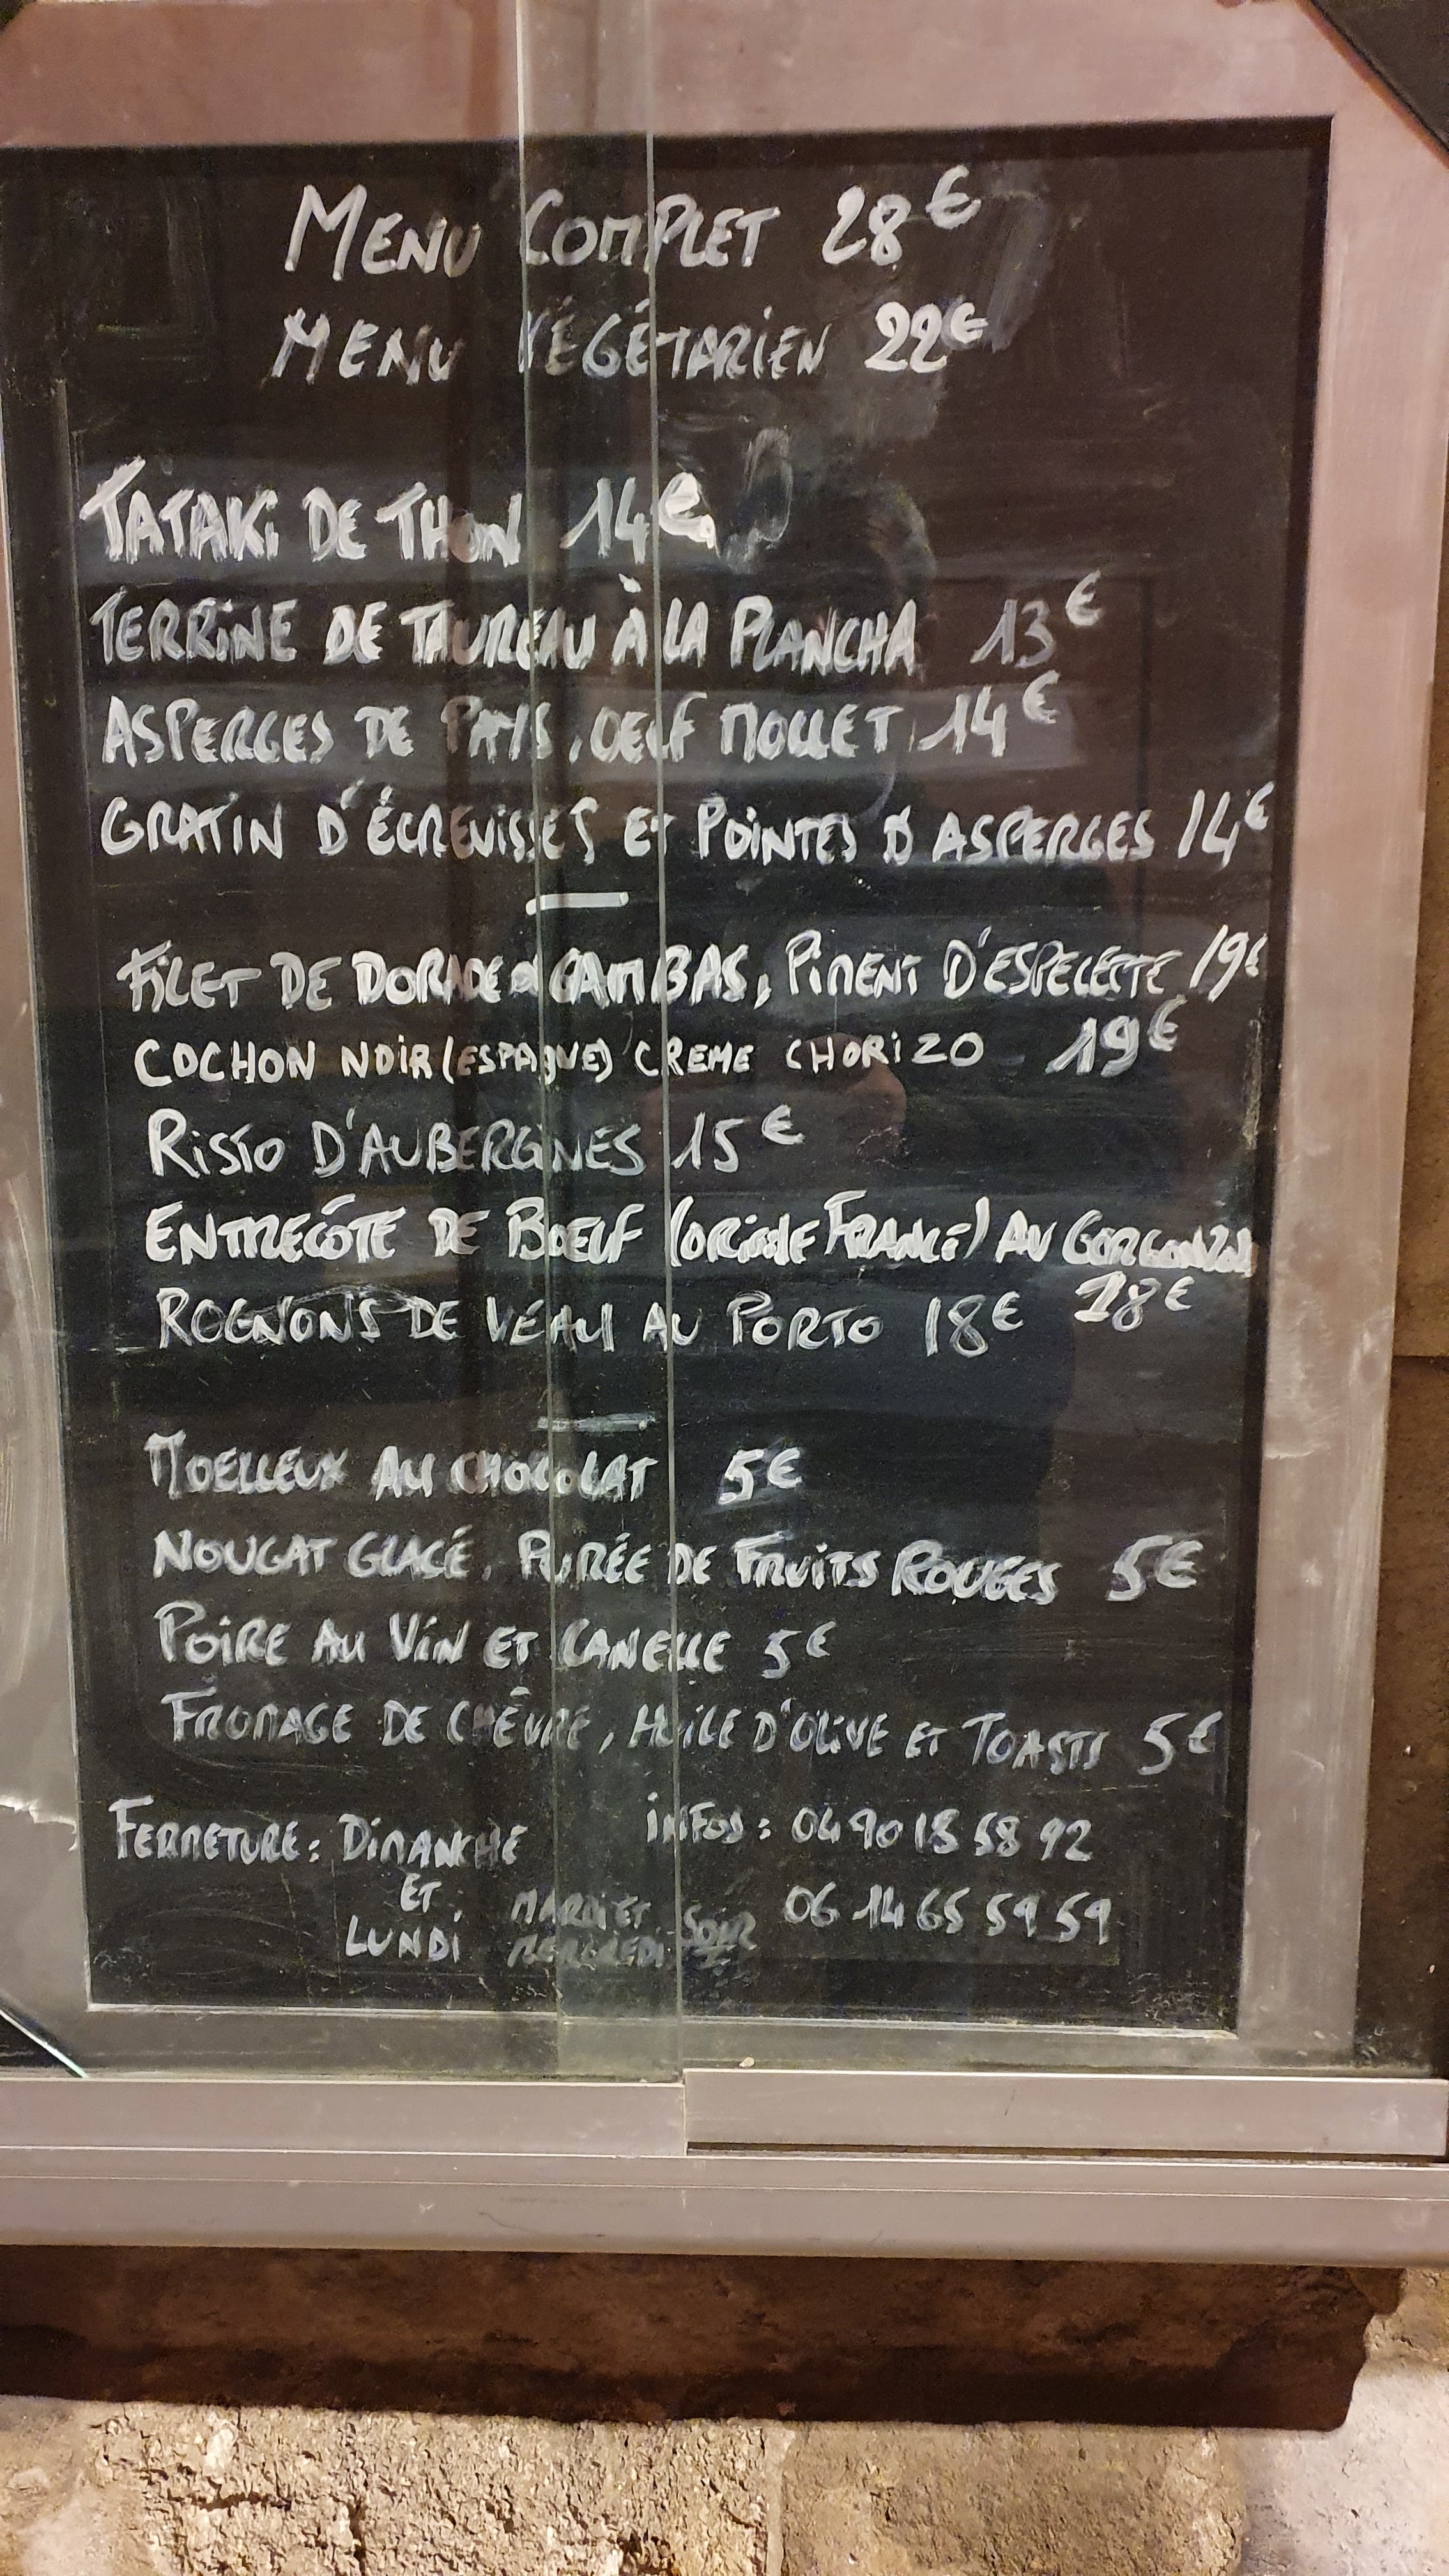 MENU COMPLET 28€
MENU VÉGÉTARIEN 22€
TATAKI DE THON 14€
TERRINE DE TAUREAU À LA PLANCHA 13€
ASPERGES DE PAYS, OEUF MOLLET 14€
GRATIN D'ÉCREVISSES ET POINTES D ASPERGES 14€
FILET DE DORADE GAMBAS, PIMENT D'ESPELETTE 19€
COCHON NOIR (ESPAGNE) CREME CHORIZO 19€
RISTO D'AUBERGINES 15€
ENTRECÔTE DE BOEUF (ORIGINE FRANCE) AU
18€
ROGNONS DE VEAU AU PORTO 18€
MOELLEUX AU CHOCOLAT 5€
NOUGAT GLACÉ, PURÉE DE FRUITS ROUGES 5€
POIRE AU VIN ET CANELLE 5€
FROMAGE DE CHÈVRE, HUILE D'OLIVE ET TOASTS 5€
FERMETURE: DIMANCHE
ET
LUNDI
MARDI ET
MERCREDI SOIR
INFOS: 04 90 18 58 92
06 14 65 59 59